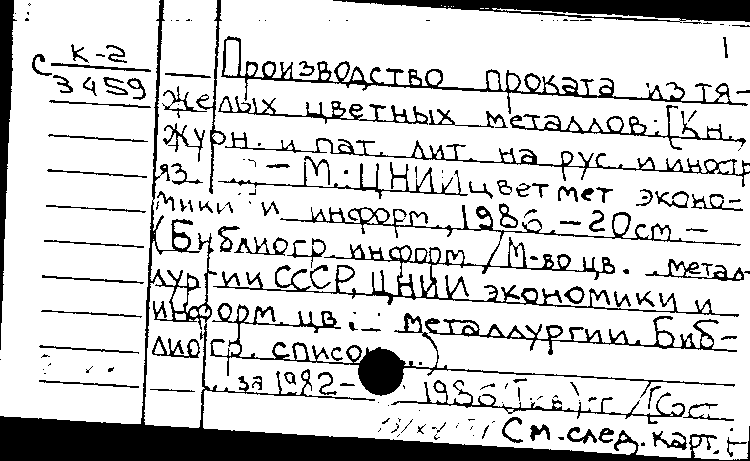 1
С К-2
3459
Производство проката из тя-
желых цветных металлов: [Кн.,
журн. и пат. лит. на рус. и иностр.
яз. ... - М.: ЦНИИцветмет эконо-
мики и информ., 1986. - 20 см. -
(Библиогр. информ. / М-во цв. метал-
лургии СССР, ЦНИИ экономики и
информ. цв. металлургии. Биб-
лиогр. список ...)
... за 1982- 1986 (I кв.) гг. / [Сост.
См. след. карт.